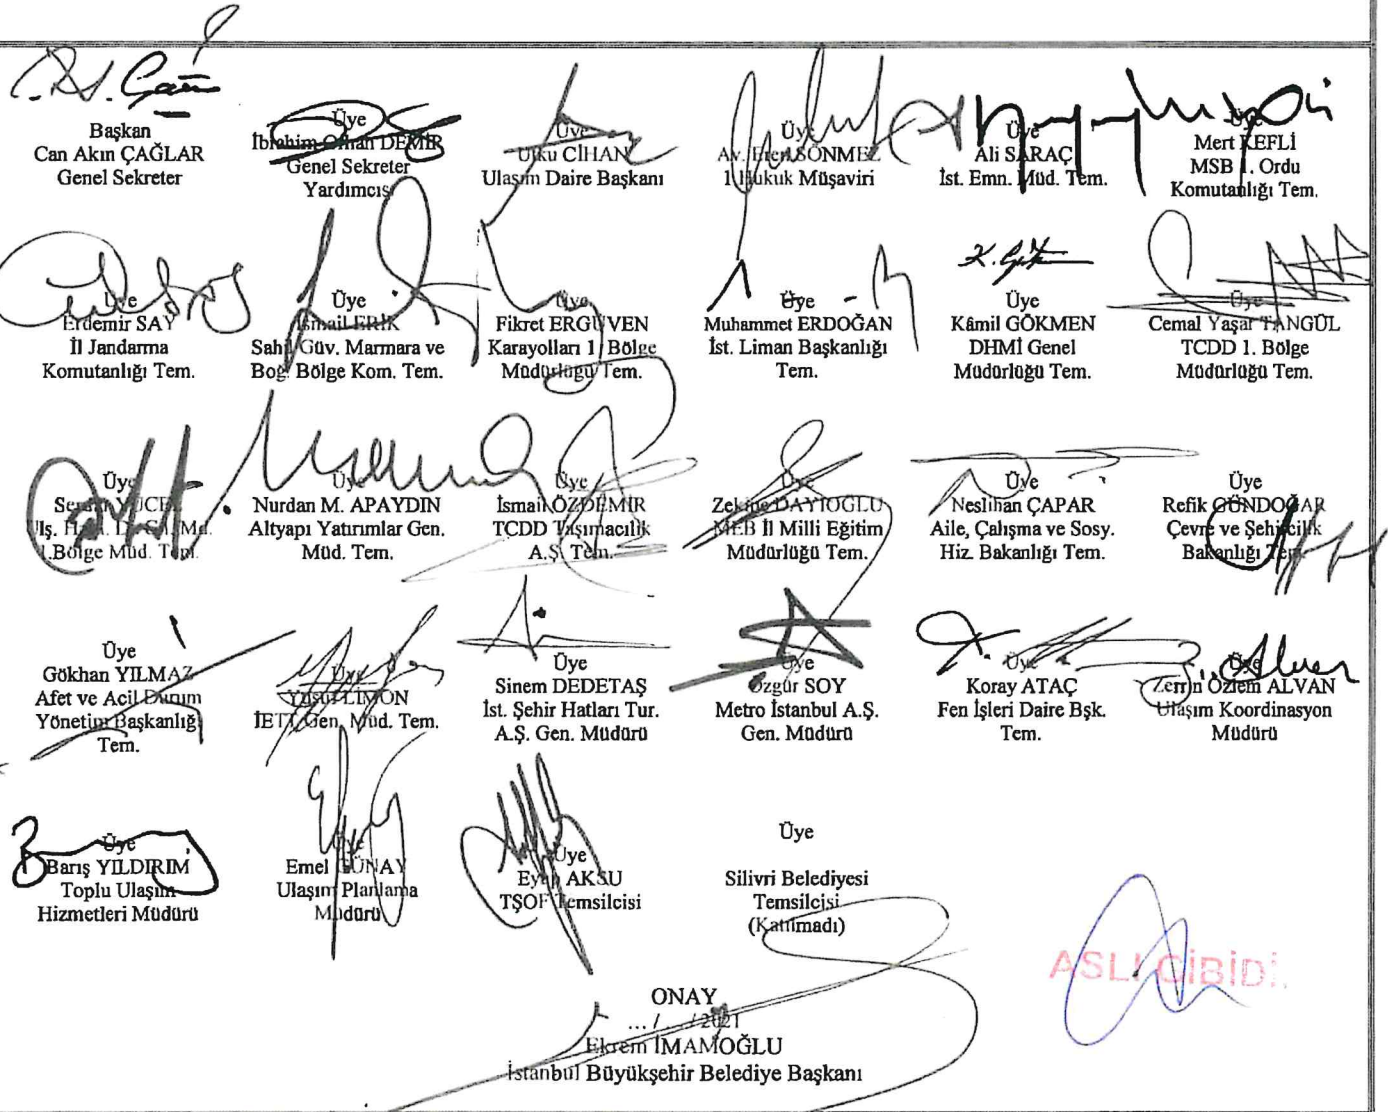 Başkan
Can Akın ÇAĞLAR
Genel Sekreter
Üye
İbrahim Orhan DEMİR
Genel Sekreter
Yardımcısı
Üye
Utku CİHAN
Ulaşım Daire Başkanı
Üye
Av. Eren SÖNMEZ
1.Hukuk Müşaviri
Üye
Ali SARAÇ
İst. Emn. Müd. Tem.
Üye
Mert KEFLİ
MSB 1. Ordu
Komutanlığı Tem.
Üye
Erdemir SAY
İl Jandarma
Komutanlığı Tem.
Üye
İsmail ERİK
Sahil Güv. Marmara ve
Boğ. Bölge Kom. Tem.
Üye
Fikret ERGÜVEN
Karayolları 1. Bölge
Müdürlüğü Tem.
Üye
Muhammet ERDOĞAN
İst. Liman Başkanlığı
Tem.
K. Gök
Üye
Kâmil GÖKMEN
DHMİ Genel
Müdürlüğü Tem.
Üye
Cemal Yaşar TANGÜL
TCDD 1. Bölge
Müdürlüğü Tem.
Üye
YÜCEL
Bölge Müd. Tem.
Üye
Nurdan M. APAYDIN
Altyapı Yatırımlar Gen.
Müd. Tem.
Üye
İsmail ÖZDEMİR
TCDD Taşımacılık
A.Ş. Tem.
Üye
Zekine DAYIOĞLU
MEB İl Milli Eğitim
Müdürlüğü Tem.
Üye
Neslihan ÇAPAR
Aile, Çalışma ve Sosy.
Hiz. Bakanlığı Tem.
Üye
Refik GÜNDOĞAR
Çevre ve Şehircilik
Bakanlığı Tem.
Üye
Gökhan YILMAZ
Afet ve Acil Durum
Yönetim Başkanlığı
Tem.
Üye
Yusuf LİMON
İETT Gen. Müd. Tem.
Üye
Sinem DEDETAŞ
İst. Şehir Hatları Tur.
A.Ş. Gen. Müdürü
Üye
Özgür SOY
Metro İstanbul A.Ş.
Gen. Müdürü
Üye
Koray ATAÇ
Fen İşleri Daire Bşk.
Tem.
Üye
Zerrin Özlem ALVAN
Ulaşım Koordinasyon
Müdürü
Üye
Barış YILDIRIM
Toplu Ulaşım
Hizmetleri Müdürü
Üye
Emel GÜNAY
Ulaşım Planlama
Müdürü
Üye
Eyüp AKSU
TŞOF Temsilcisi
Üye
Silivri Belediyesi
Temsilcisi
(Katılmadı)
ASLI GİBİDİR
ONAY
... / ... / 2021
Ekrem İMAMOĞLU
İstanbul Büyükşehir Belediye Başkanı